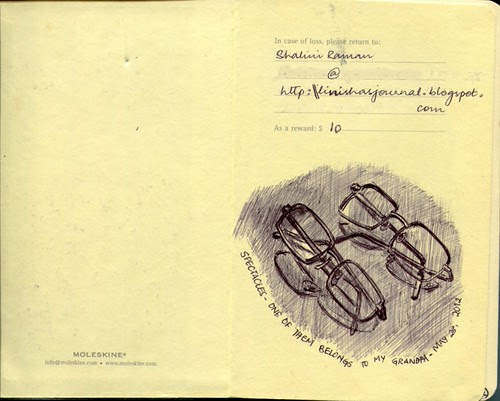 MOLESKINE®
info@moleskine.com • www.moleskine.com
In case of loss, please return to:
Shalini Raman
@
http:\\linishasjournal.blogspot.
com
As a reward: $ 10
SPECTACLES - ONE OF THEM BELONGS TO MY GRANDPA - MAY 28, 2012